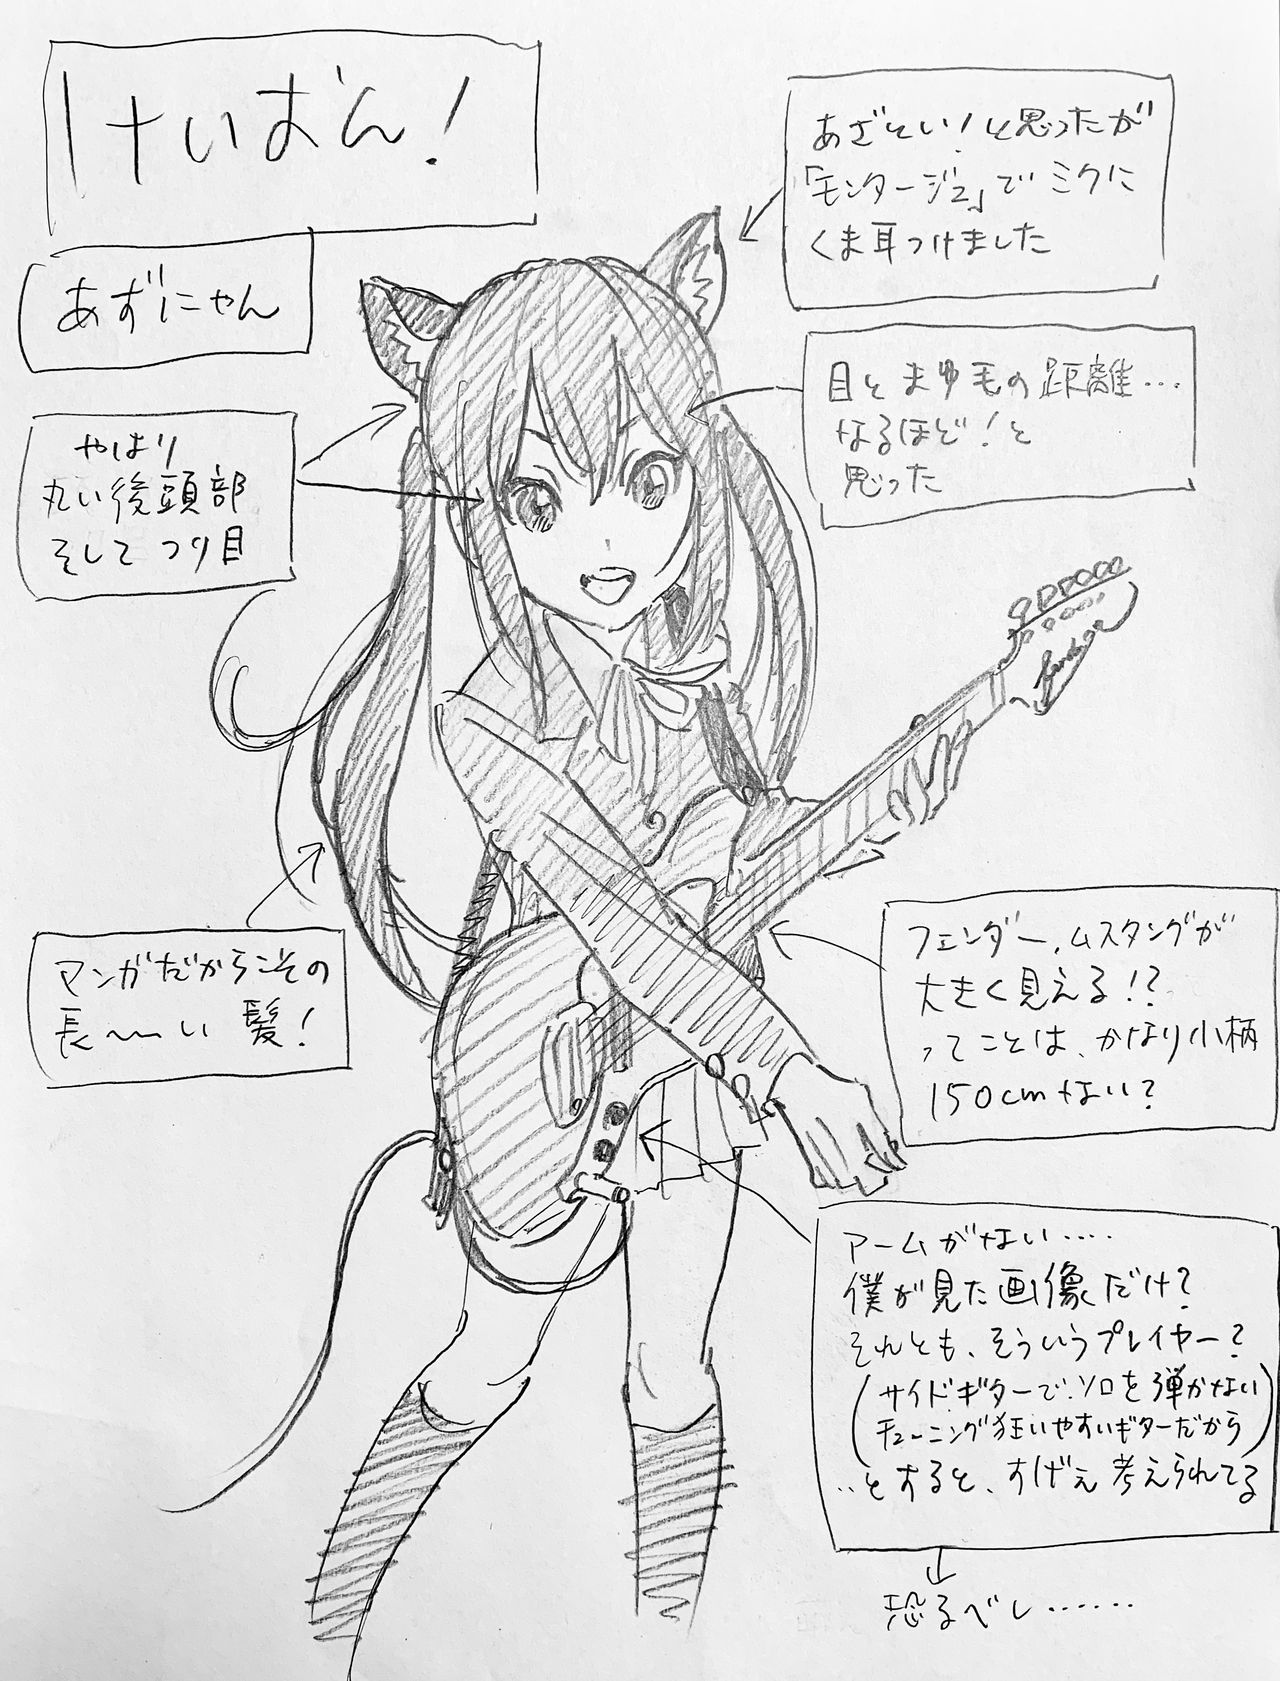 けいおん!
あずにゃん
あざとい!と思ったが
「モンタージュ」でミクに
くま耳つけました
目とまゆ毛の距離…
なるほど!と
思った
やはり
丸い後頭部
そしてつり目
マンガだからこその
長〜〜い髪!
フェンダー、ムスタングが
大きく見える!?
ってことは、かなり小柄
150cmない?
アームがない….
僕が見た画像だけ?
それとも、そういうプレイヤー?
(サイドギターで、ソロを弾かない
チューニング狂いやすいギターだから)
…とすると、すげぇ考えられてる
恐るべし……